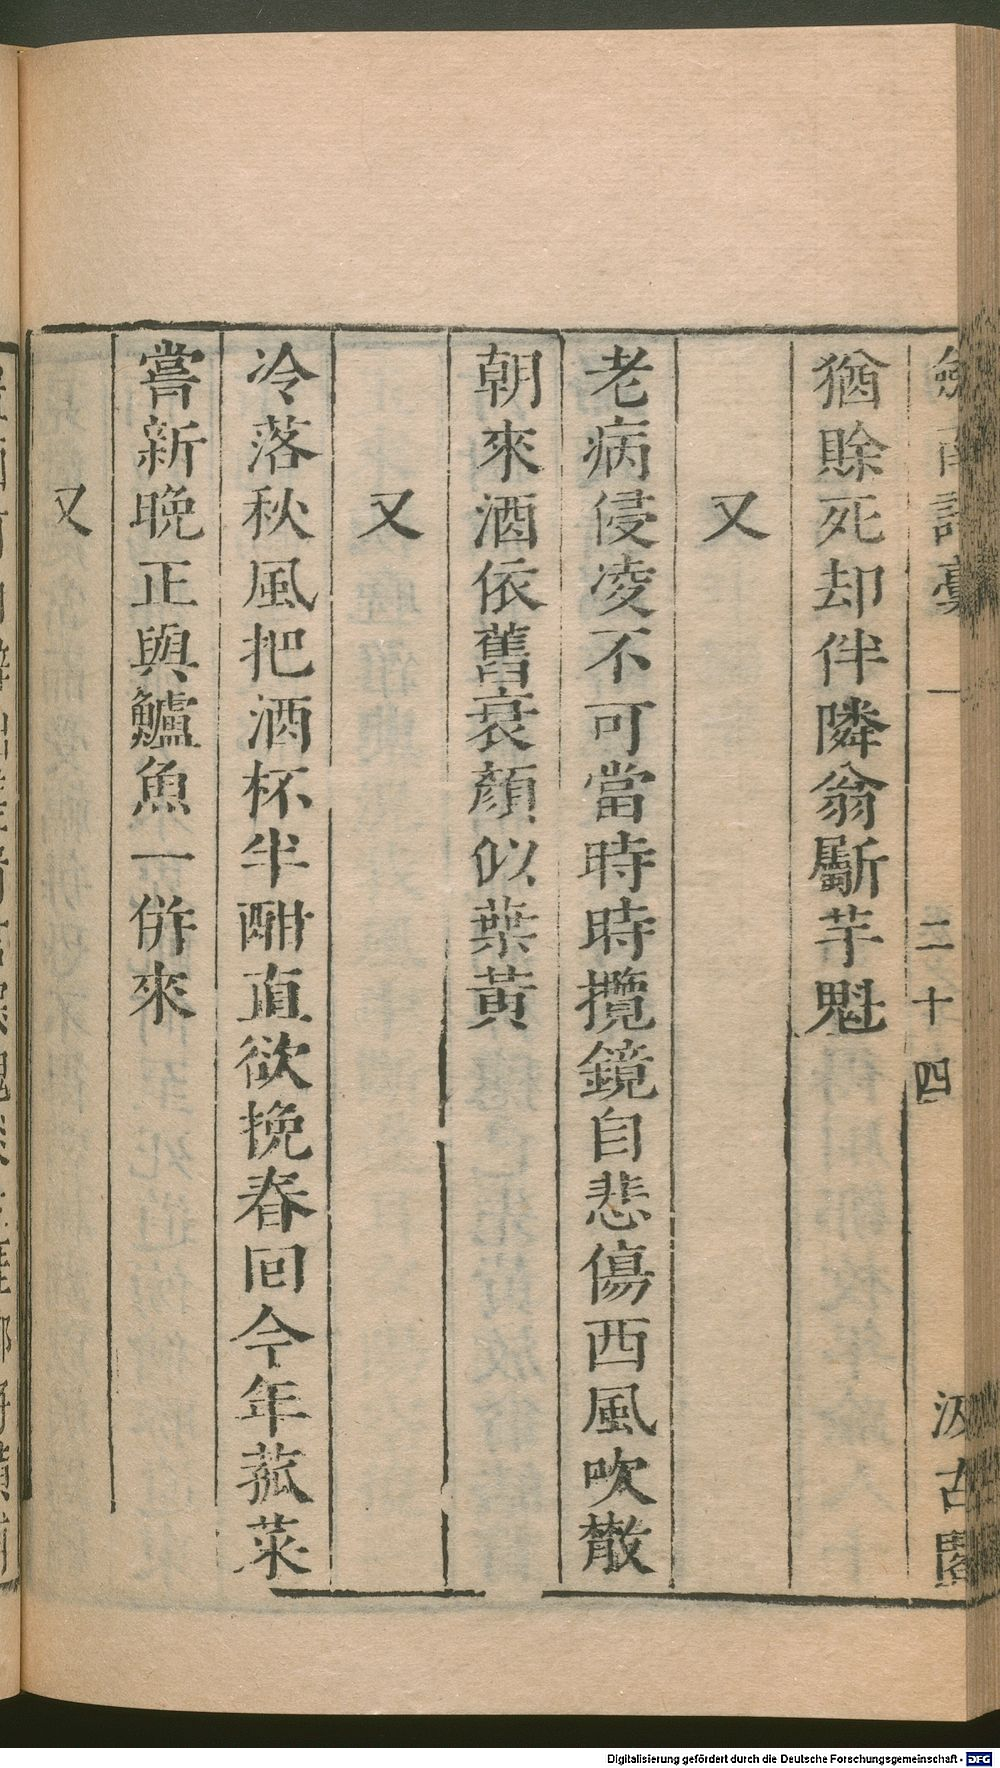 劍南詩藁 一 二十四 汲古閣
猶賖死却伴隣翁斸芋魁
又
老病侵凌不可當時時攬鏡自悲傷西風吹散
朝來酒依舊衰顏似葉黃
又
冷落秋風把酒杯半酣直欲挽春回今年菰菜
嘗新晚正與鱸魚一併來
又
Digitalisierung gefördert durch die Deutsche Forschungsgemeinschaft - DFG